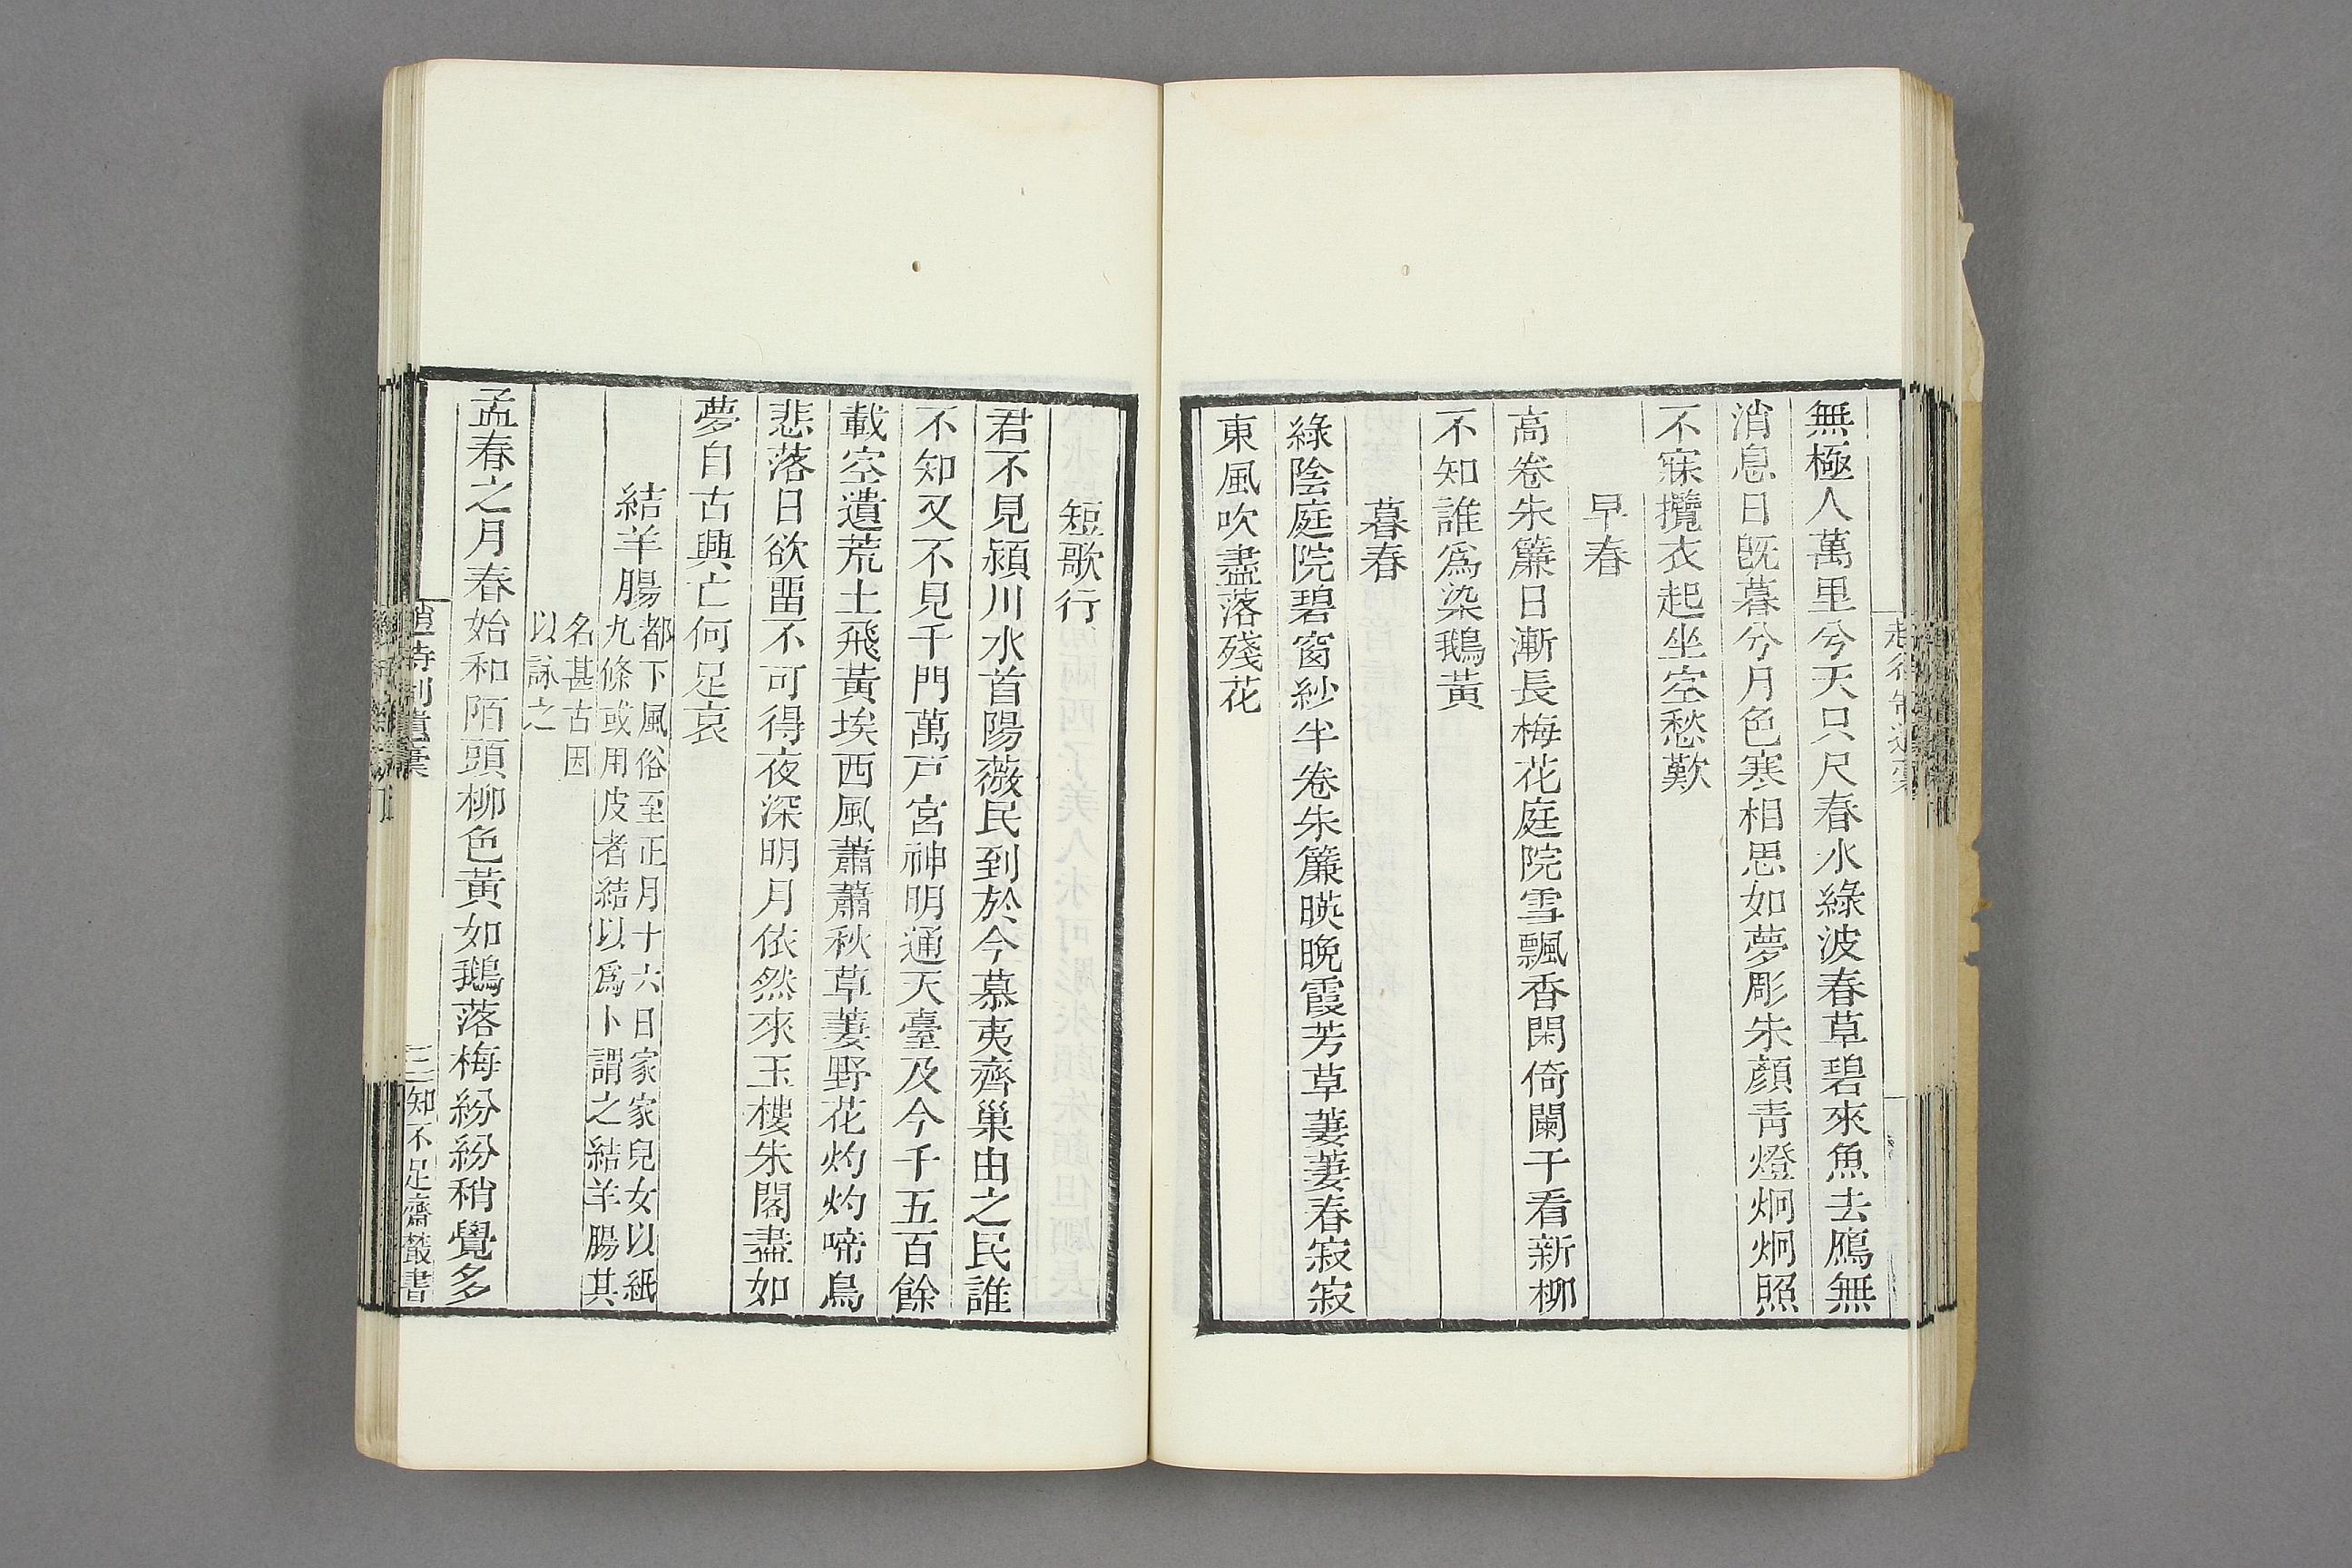 無極人萬里兮天只尺春水綠波春草碧來魚去鴈無
消息日旣暮兮月色寒相思如夢彫朱顏靑燈炯炯照
不寐攬衣起坐空愁歎
早春
高卷朱簾日漸長梅花庭院雪飄香閑倚闌干看新柳
不知誰爲染鵝黃
暮春
綠陰庭院碧窗紗半卷朱簾暎晚霞芳草萋萋春寂寂
東風吹盡落殘花
短歌行
君不見潁川水首陽薇民到於今慕夷齊巢由之民誰
不知又不見千門萬戸宮神明通天臺及今千五百餘
載空遺荒土飛黃埃西風蕭蕭秋草萋野花灼灼啼鳥
悲落日欲畱不可得夜深明月依然來玉樓朱閣盡如
夢自古興亡何足哀
結羊腸
都下風俗至正月十六日家家兒女以紙
九條或用皮者結以爲卜謂之結羊腸其
名甚古因
以詠之
孟春之月春始和陌頭柳色黃如鵝落梅紛紛稍覺多
趙待制遺藁
三
知不足齋叢書